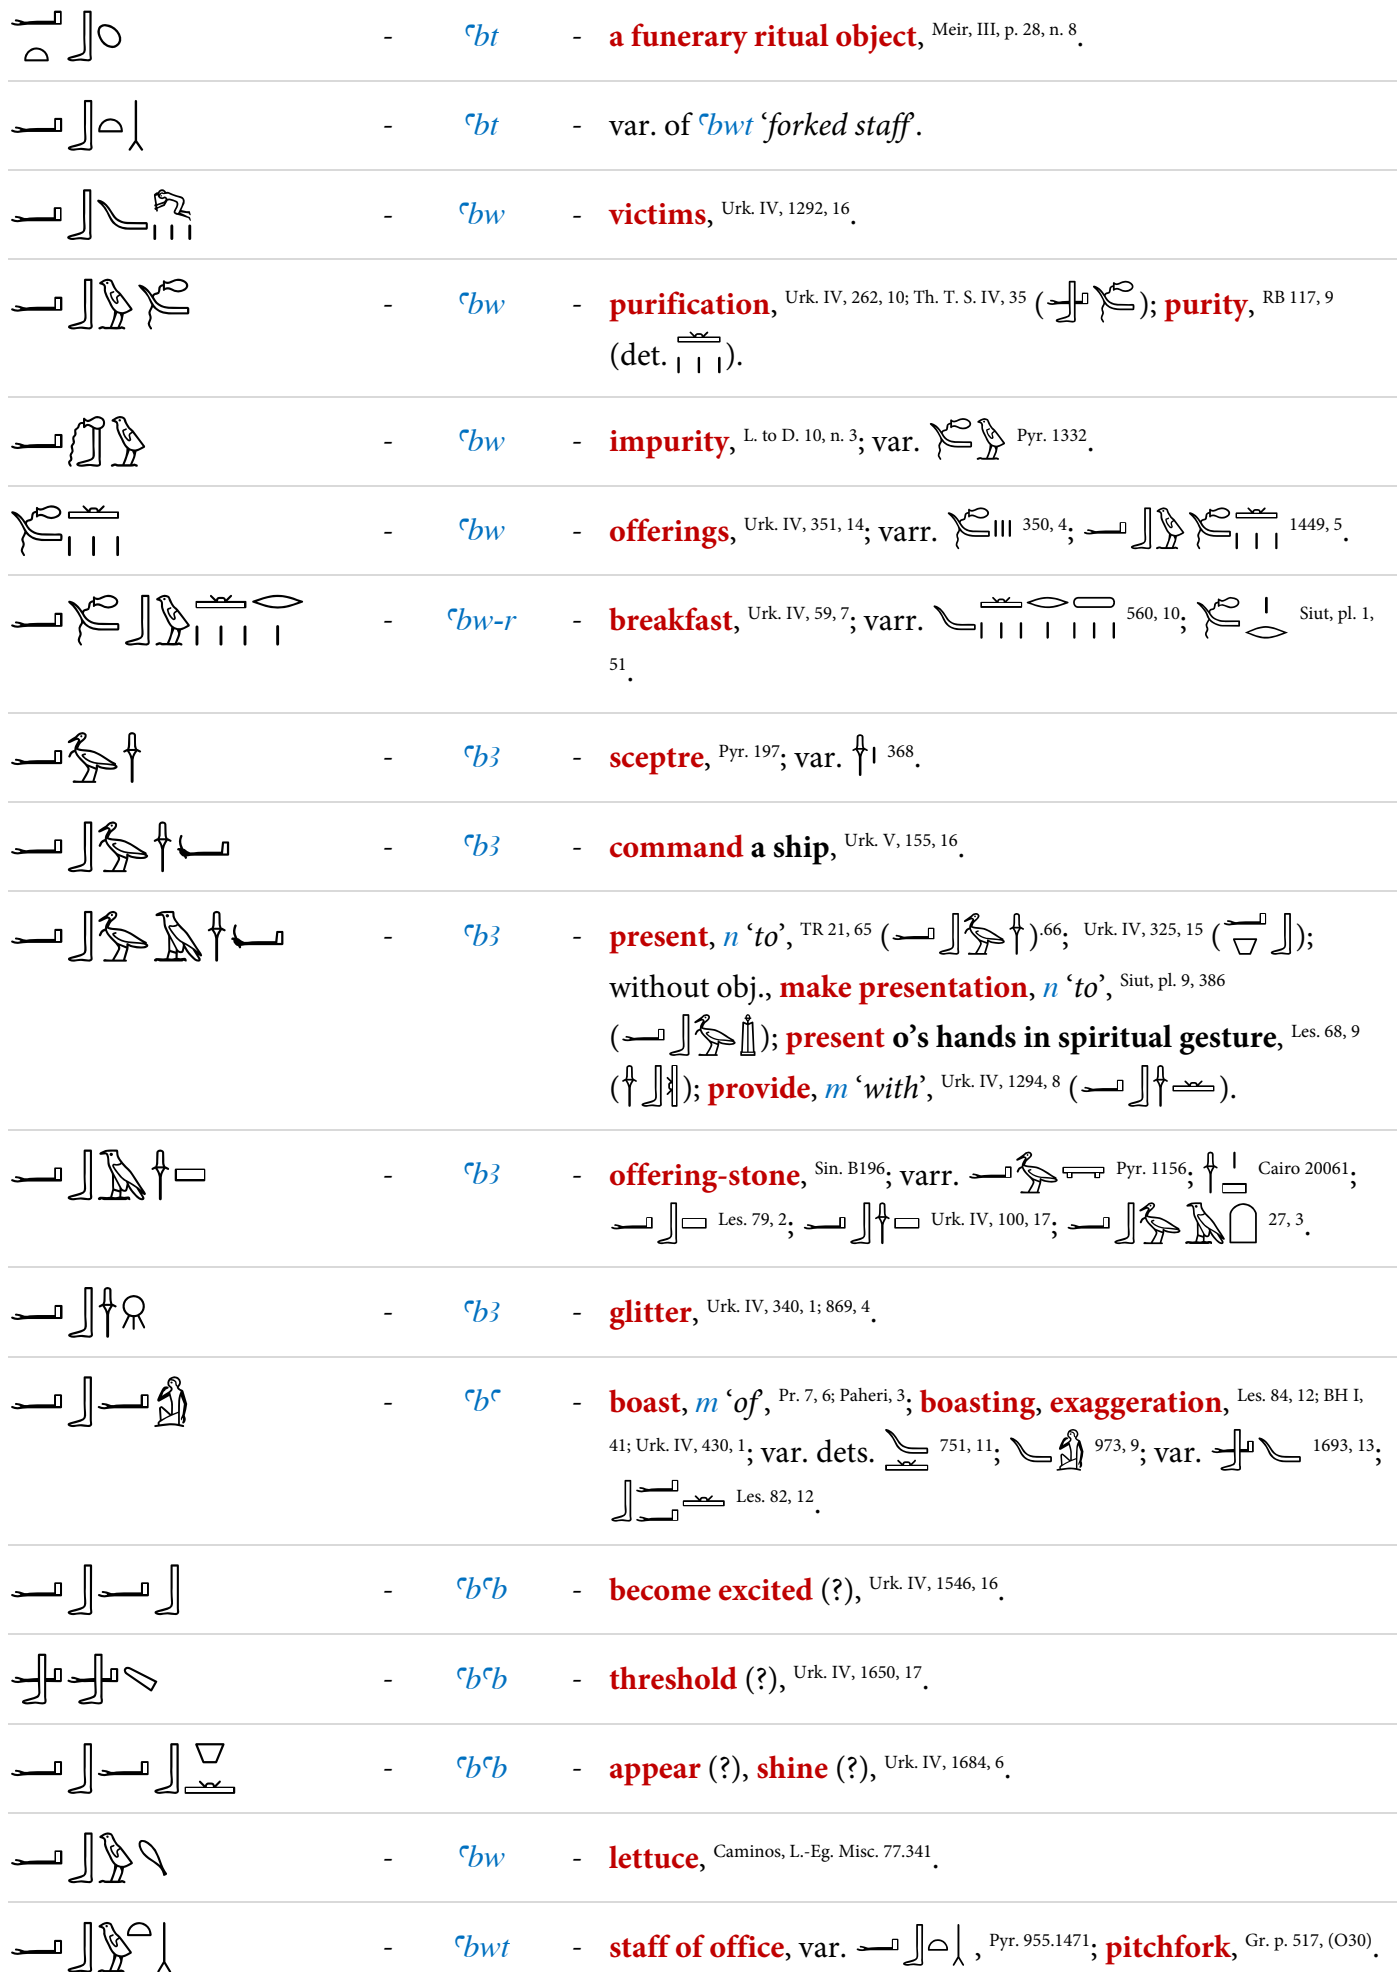 𓂝𓏏𓃀𓆇 - ꜥbt - a funerary ritual object, Meir, III, p. 28, n. 8.
𓂝𓃀𓏏𓉿 - ꜥbt - var. of ꜥbwt ‘forked staff’.
𓂝𓃀𓄏𓏥 - ꜥbw - victims, Urk. IV, 1292, 16.
𓂝𓃀𓅱𓄐 - ꜥbw - purification, Urk. IV, 262, 10; Th. T. S. IV, 35 (𓃁𓄐); purity, RB 117, 9
(det. 𓏛𓏥).
𓂝𓃂𓅱 - ꜥbw - impurity, L. to D. 10, n. 3; var. 𓄐𓅱 Pyr. 1332.
𓄐𓏛𓏥 - ꜥbw - offerings, Urk. IV, 351, 14; varr. 𓄐𓏥 350, 4; 𓂝𓃀𓅱𓄐𓏛𓏥 1449, 5.
𓂝𓄐𓃀𓅱𓏛𓏥𓂋𓏤 - ꜥbw-r - breakfast, Urk. IV, 59, 7; varr. 𓄏𓏛𓏥𓂋𓏤𓈀𓏥 560, 10; 𓄐𓏤𓂋 Siut, pl. 1,
51.
𓂝𓅡𓌂 - ꜥbꜣ - sceptre, Pyr. 197; var. 𓌂𓏤 368.
𓂝𓃀𓅡𓌂𓂡 - ꜥbꜣ - command a ship, Urk. V, 155, 16.
𓂝𓃀𓅡𓄿𓌂𓂡 - ꜥbꜣ - present, n ‘to’, TR 21, 65 (𓂝𓃀𓅡𓌂).66; Urk. IV, 325, 15 (𓂝𓎺𓃀);
without obj., make presentation, n ‘to’, Siut, pl. 9, 386
(𓂝𓃀𓅡); present o’s hands in spiritual gesture, Les. 68, 9
(𓌂𓃀𓏜); provide, m ‘with’, Urk. IV, 1294, 8 (𓂝𓃀𓌂𓏛).
𓂝𓃀𓄿𓌂𓈙 - ꜥbꜣ - offering-stone, Sin. B196; varr. 𓂝𓅡 Pyr. 1156; 𓌂𓏤𓈙 Cairo 20061;
𓂝𓃀𓈙 Les. 79, 2; 𓂝𓃀𓌂𓈙 Urk. IV, 100, 17; 𓂝𓃀𓅡𓄿𓉸 27, 3.
𓂝𓃀𓌂𓇶 - ꜥbꜣ - glitter, Urk. IV, 340, 1; 869, 4.
𓂝𓃀𓂝𓀁 - ꜥbꜥ - boast, m ‘of’, Pr. 7, 6; Paheri, 3; boasting, exaggeration, Les. 84, 12; BH I,
41; Urk. IV, 430, 1; var. dets. 𓄏𓏛 751, 11; 𓄏𓀁 973, 9; var. 𓃁𓄏 1693, 13;
𓃀𓂝𓂝𓏛 Les. 82, 12.
𓂝𓃀𓂝𓃀 - ꜥbꜥb - become excited (?), Urk. IV, 1546, 16.
𓃁𓃁 - ꜥbꜥb - threshold (?), Urk. IV, 1650, 17.
𓂝𓃀𓂝𓃀𓎺𓏛 - ꜥbꜥb - appear (?), shine (?), Urk. IV, 1684, 6.
𓂝𓃀𓅱 - ꜥbw - lettuce, Caminos, L.-Eg. Misc. 77.341.
𓂝𓃀𓅱𓏏𓉿 - ꜥbwt - staff of office, var. 𓂝𓃀𓏏𓉿, Pyr. 955.1471; pitchfork, Gr. p. 517, (O30).